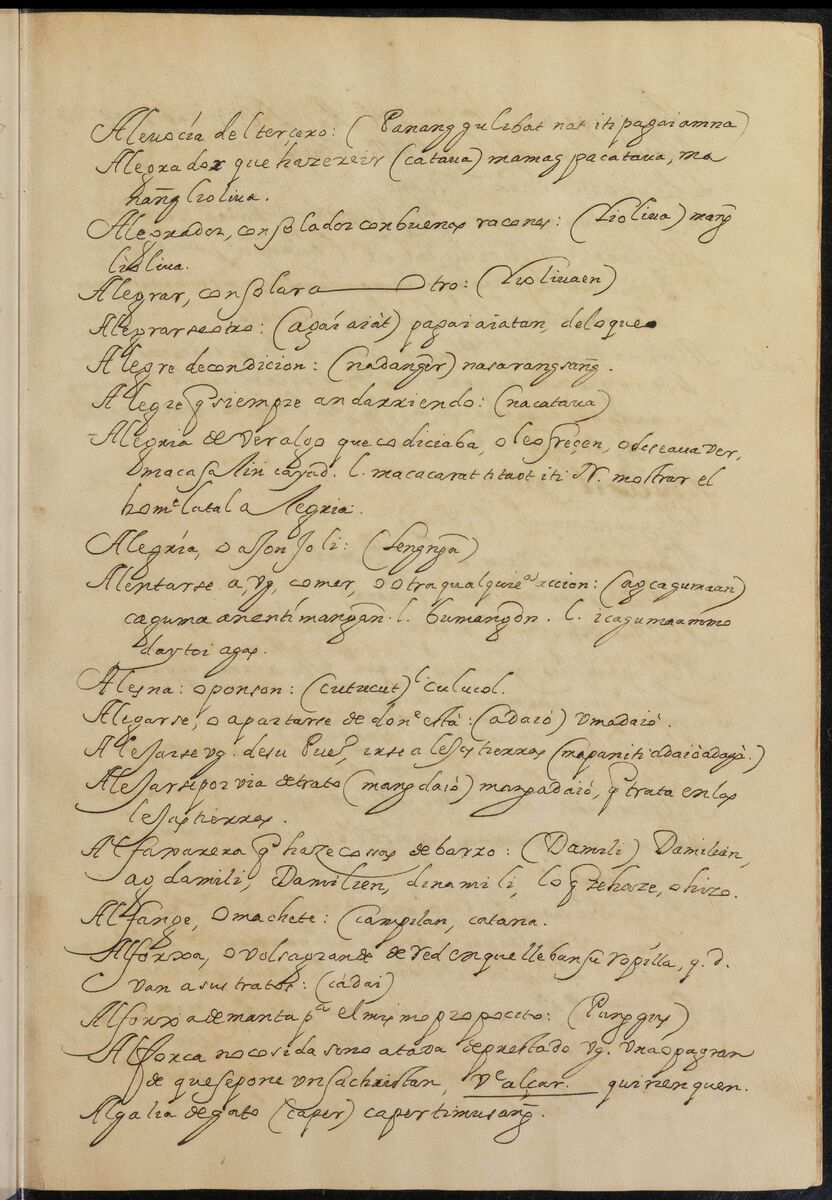 Aleuocía del terçero: (Panang gulibat nat iti pagaiamna)
Alegrador que haze reir (cataua) mamag pacataua, ma
nang̃ lioliua.
Alegrador, consolador con buenas raçones: (lioliua) mang̃
lioliua.
Alegrar, consolar a otro: (lioliuaen)
Alegrarse otro: (agaí aiàt) pagaiaiatan, delo que
Alegre de condicion: (nadang̃er) nasarangsang̃.
Alegre q̃ siempre anda rriendo: (nacataua)
Alegria de ver algo que codiciaba, o le ofreçen, o deseaua ver,
l. macacarat titaot iti N. mostrar el
home la tal alegria.
Alegría, o aJonJoli: (lengng̃a)
Alentarse a, vg, comer, o otra qualquiera accion: (agcagumaan)
caguma anentí mang̃an. l. bumang̃on. l. icagumaammo
daytoi agas.
Alesna: o ponson: (cutucut) l. culucol.
Alegarse, o apartarse de donde està: (adaió) vmadaió.
Alejarse vg. de su Pueo, irse a lejas tierras (mapan iti adaió adagà.)
Alejarse por via de trato (mang̃daió) mangadaió, q̃ trata en las
lejas tierras.
Alfaharera q̃ haze cossas de barro: (Damili) Damilían,
ag damili, Damilien, dinamili, lo q̃ se haze, o hizo.
Alfange, o machete: (campilan, catana.
Alforxa, o volsa grande de red en que lleban su ropilla, q.d.
van a sus tratos: (càdai)
Alforxa de manta pa el mismo propocito: (Pang̃gus)
Alforca no cosida sino atada de prestado vg. vna opa gran
de que se pone vn sachristan, ve alçar. quirienquen.
Algalia de gato (caper) caper timusang̃.